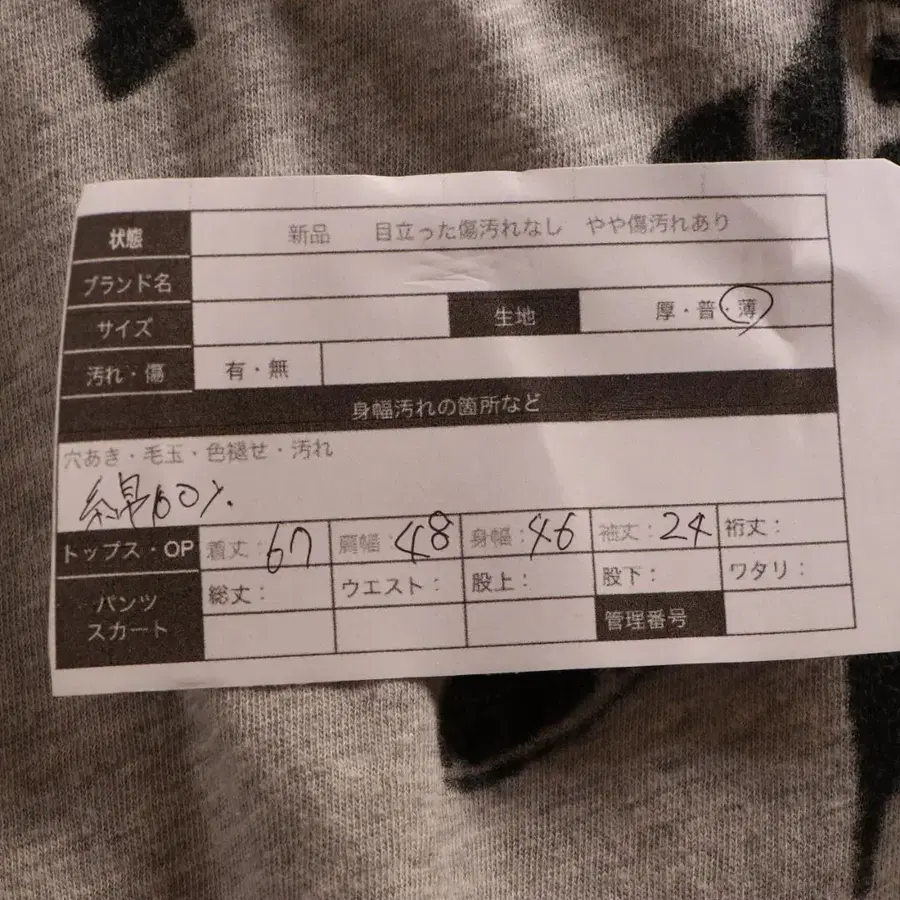 状態 新品 目立った傷汚れなし やや傷汚れあり
ブランド名
サイズ 生地 厚・普・薄
汚れ・傷 有・無
身幅汚れの箇所など
穴あき・毛玉・色褪せ・汚れ
綿100%
トップス・OP 着丈:67 肩幅:48 身幅:46 袖丈:24 裄丈:
パンツ スカート 総丈: ウエスト: 股上: 股下: ワタリ:
管理番号